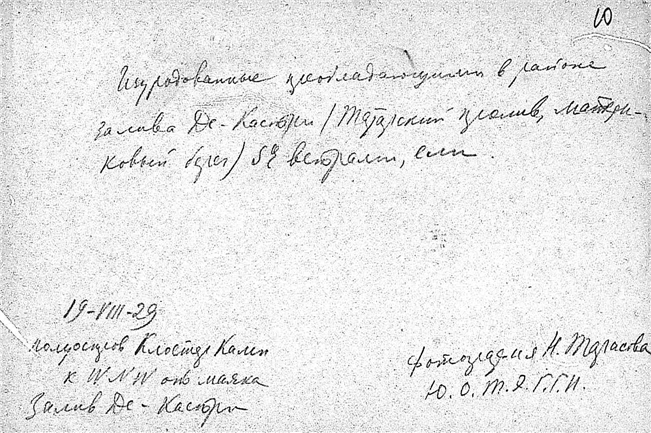 10
Изуродованные преобладающими в районе
залива Де-Кастри /Татарский пролив, матери-
ковый берег/ SE ветрами, ели.
19-VIII-29
полуостров Клостер Камп
к WNW от маяка
Залив Де-Кастри
Фотография Н. Тарасова
Ю.О.Т.Я.Г.Г.И.